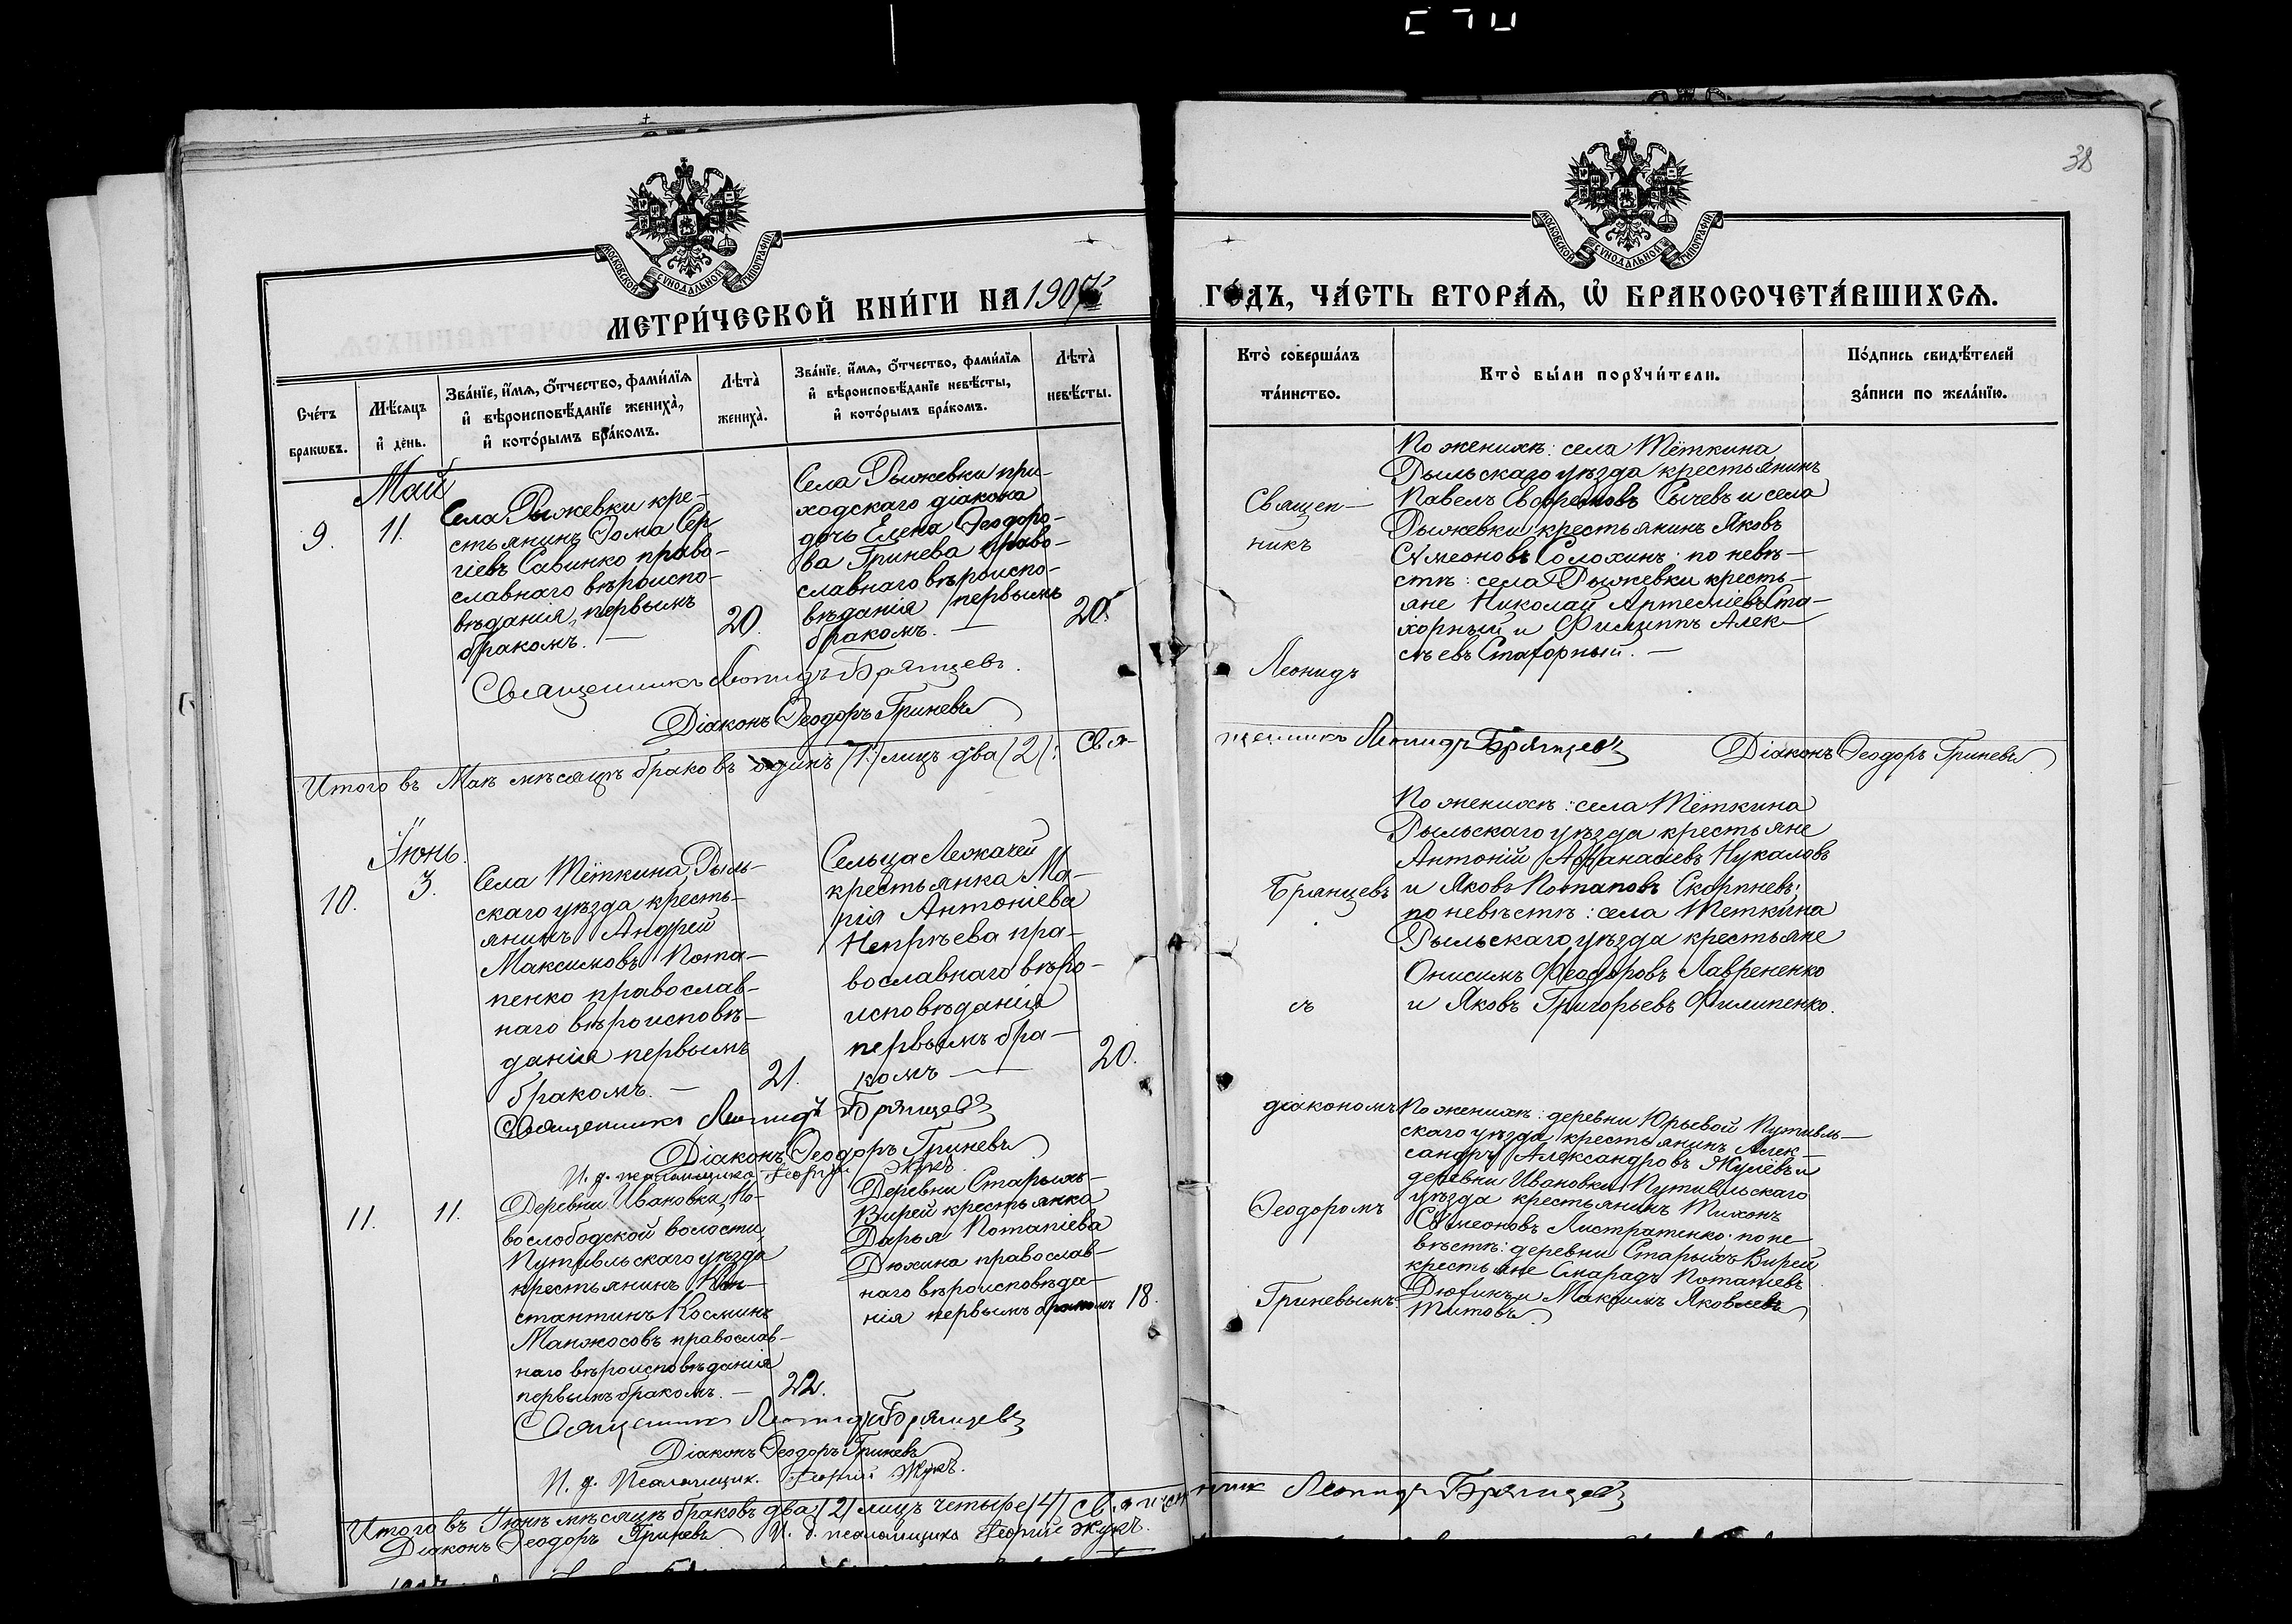 38
МОСКОВСКОЙ СѴНОДАЛЬНОЙ ТИПОГРАФІИ
МОСКОВСКОЙ СѴНОДАЛЬНОЙ ТИПОГРАФІИ
МЕТРИ́ЧЕСКОЙ КНИ́ГИ НА 1907
ГО́ДЪ, ЧА́СТЬ ВТОРА́Я, Ѡ БРАКОСОЧЕТА́ВШИХСЯ.
Сче́тъ
браковъ.
Мѣ́сяцъ
и҆ де́нь.
Зва́нїе, и҆́мя, ѻ҆́тчество, фами́лїя
и҆ вѣроисповѣ́данїе жениха̀,
и҆ кото́рымъ бра́комъ.
Лѣта̀
жениха̀.
Зва́нїе, и҆́мя, ѻ҆́тчество, фами́лїя
и҆ вѣроисповѣ́данїе невѣ́сты,
и҆ кото́рымъ бра́комъ.
Лѣта̀
невѣ́сты.
Кто̀ соверша́лъ
та́инство.
Кто̀ бы́ли порꙋчи́тели.
По́дпись свидѣ́телей
за́писи по жела́нїю.
Май
9.
11.
Села Рыжевки кре-
стьянинъ Ѳома Сер-
гіевъ Савинко право-
славнаго вѣроиспо-
вѣданія, первымъ
бракомъ. —
20.
Села Рыжевки при-
ходскаго діакона
дочь Елена Ѳеодоро-
ва Гринева право-
славнаго вѣроиспо-
вѣданія первымъ
бракомъ. —
20.
Священ-
никъ
Леонидъ
По женихѣ: села Тёткина
Рыльскаго уѣзда крестьянинъ
Павелъ Сычевъ и села
Рыжевки крестьянинъ Яковъ
Сѵмеоновъ Солохинъ: по невѣ-
стѣ: села Рыжевки кресть-
яне Николай Артеміевъ Ста-
хорный и Филиппъ Алек-
сѣевъ Стахорный. —
Священникъ Леонидъ Брянцевъ.
Діаконъ Ѳеодоръ Гриневъ
Итого въ Маѣ мѣсяцѣ браковъ одинъ /1/ лицъ два /2/: Свя-
щенникъ Леонидъ Брянцевъ
Діаконъ Ѳеодоръ Гриневъ
Іюнь.
10.
3.
Села Тёткина Рыль-
скаго уѣзда кресть-
янинъ Андрей
Максимовъ Пота-
пенко православ-
наго вѣроисповѣ-
данія первымъ
бракомъ. —
21.
Сельца Лежачей
крестьянка Ма-
рія Антоніева
пра-
вославнаго вѣро-
исповѣданія
первымъ бра-
комъ —
20.
Брянцевъ
съ
По женихѣ: села Тёткина
Рыльскаго уѣзда крестьяне
Антоній Аѳанасіевъ Чукаловъ
и Яковъ Потаповъ Скорпневъ;
по невѣстѣ: села Теткина
Рыльскаго уѣзда крестьяне
Онисимъ Ѳеодоровъ Лаврененко
и Яковъ Григорьевъ Филипенко.
Священникъ Леонидъ Брянцевъ
Діаконъ Ѳеодоръ Гриневъ
И. д. псаломщика Георгій Жукъ.
11.
11.
Деревни Ивановки, Но-
вослободской волости,
Путивльскаго уѣзда
крестьянинъ Кон-
стантинъ Косминъ
Манжосовъ православ-
наго вѣроисповѣданія
первымъ бракомъ. —
22.
Деревни Старыхъ-
Вирей крестьянка
Дарья Потапіева
Дюкина православ-
наго вѣроисповѣда-
нія первымъ бракомъ
18.
діакономъ
Ѳеодоромъ
Гриневымъ.
По женихѣ: деревни Юрьевой Путивль-
скаго уѣзда крестьянинъ Алек-
сандръ Александровъ Жулёвъ и
деревни Ивановки Путивльскаго
уѣзда крестьянинъ Тихонъ
Сѵмеоновъ Листратенко. по не-
вѣстѣ: деревни Старыхъ Вирей
крестьяне Смарадъ Потапіевъ
Дюкинъ и Максимъ Яковлевъ
Титовъ.
Священникъ Леонидъ Брянцевъ
Діаконъ Ѳеодоръ Гриневъ
И. д. Псаломщик. Георгій Жукъ.
Итого въ Іюнѣ мѣсяцѣ браковъ два /2/ лицъ четыре /4/ Священник Леонидъ Брянцевъ
Діаконъ Ѳеодоръ Гриневъ И. д. псаломщика Георгій Жукъ.